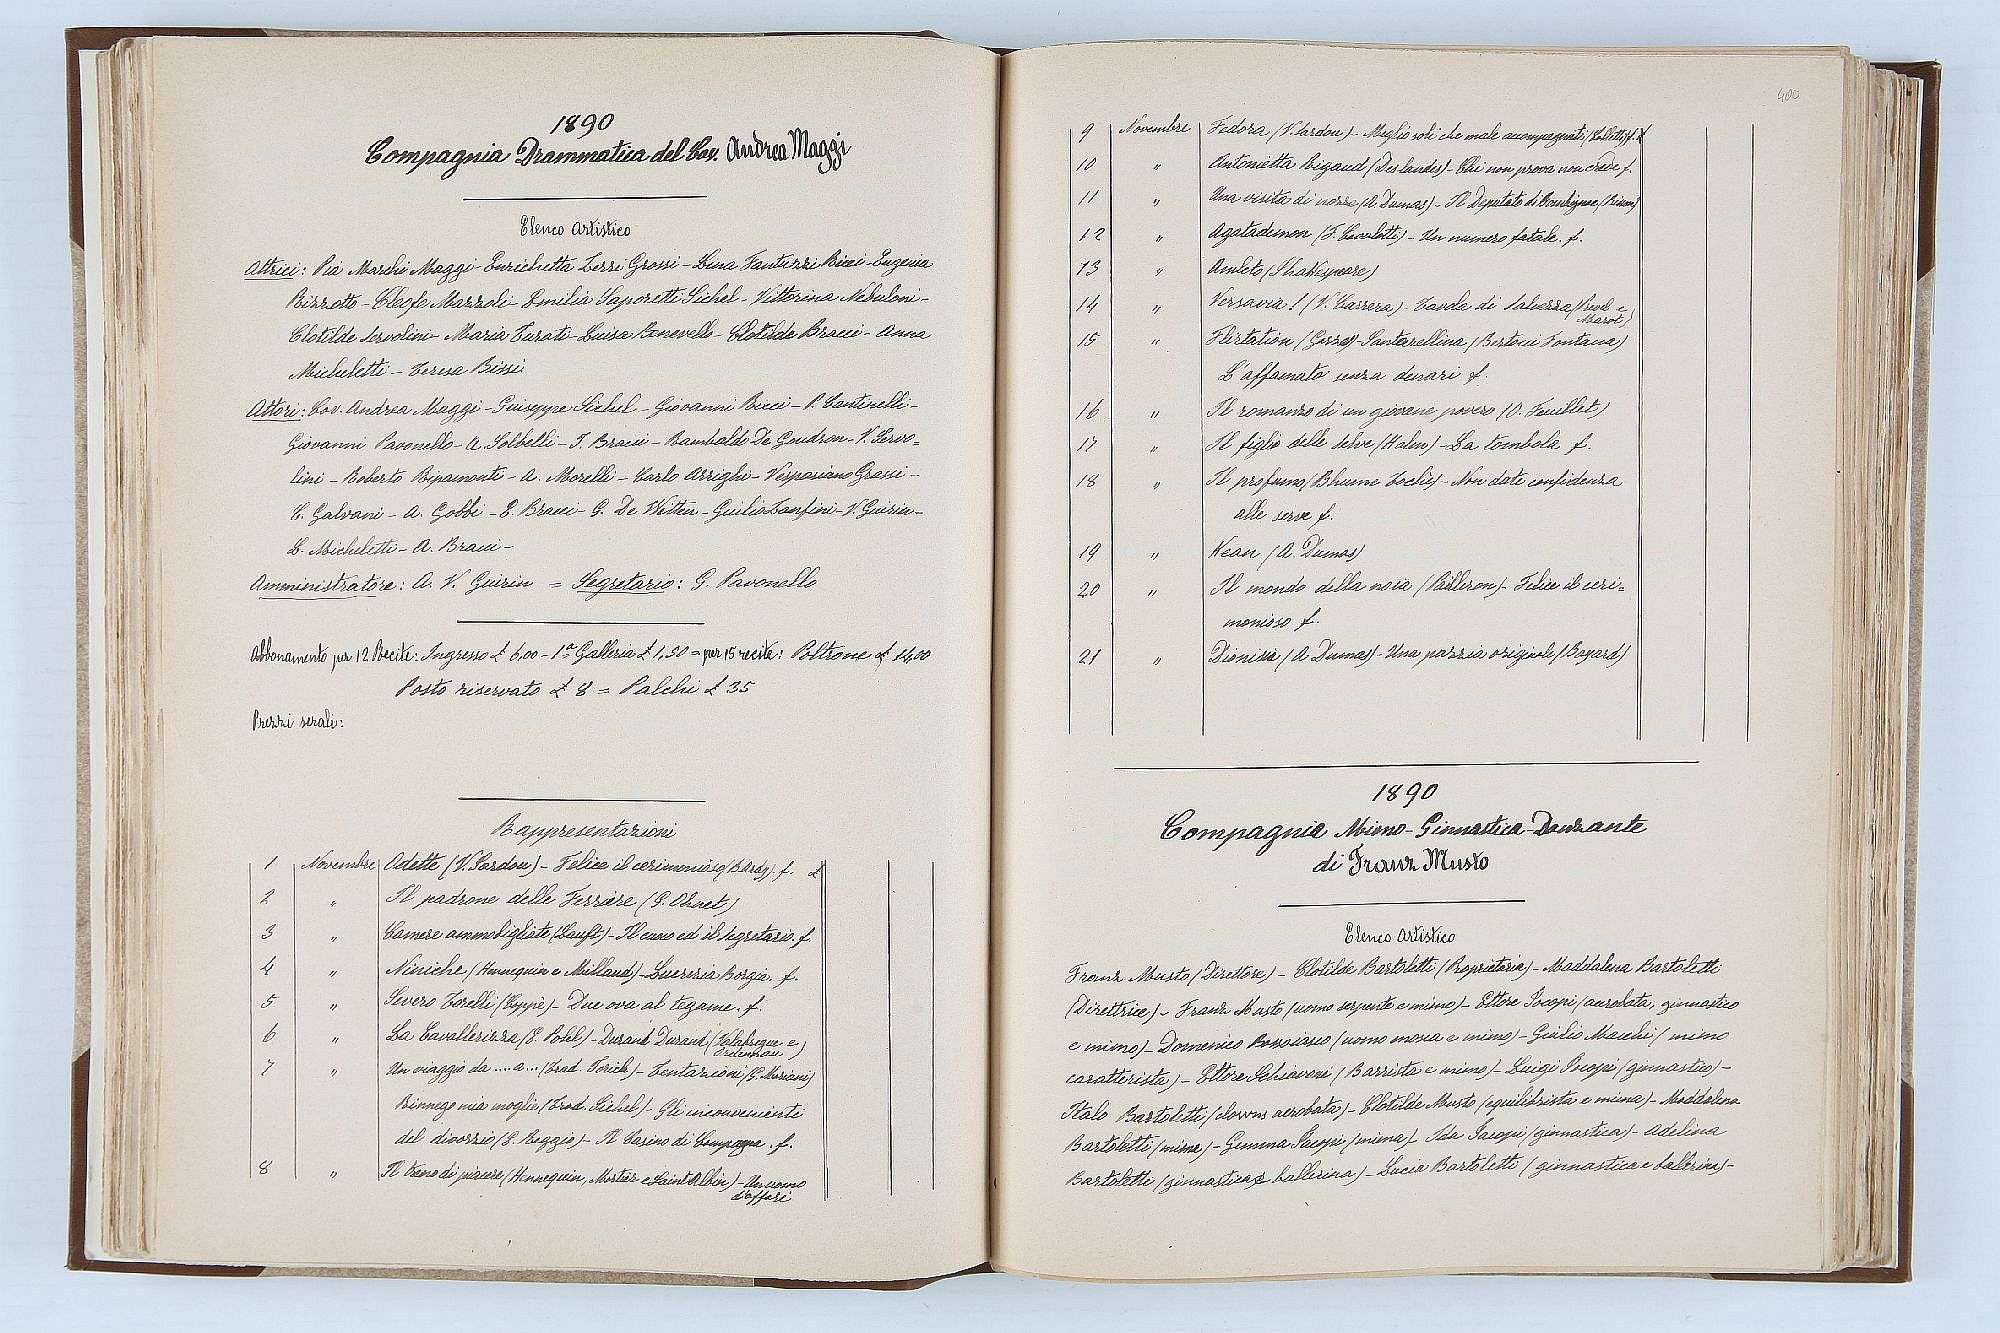 1890
Compagnia Drammatica del Cav. Andrea Maggi
Elenco Artistico
Attrici: Pia Marchi Maggi - Enrichetta Zerri Grossi - Lina Fantuzzi Ricci - Eugenia
Bizzotto - Cleofe Mazzoli - Emilia Saporetti Sichel - Vittorina Nebuloni -
Clotilde Servolini - Maria Turati - Luisa Benevelli - Clotilde Bracci - Anna
Micheletti - Teresa Bissi
Attori: Cav. Andrea Maggi - Giuseppe Sichel - Giovanni Ricci - P. Cantinelli -
Giovanni Pavonello - A. Solbelli - T. Bracci - Rambaldo De Goudron - V. Servo=
lini - Roberto Ripamonti - A. Morelli - Carlo Arrighi - Vespasiano Grossi -
C. Galvani - A. Gobbi - E. Bracci - G. De Witten - Giulio Zanfini - V. Guirin -
L. Micheletti - A. Bracci -
Amministratore: A. V. Guirin = Segretario: G. Pavonello
Abbonamento per 12 Recite: Ingresso £ 6,00 - 1a Galleria £ 1,50 = per 15 recite: Poltrone £ 14,00
Posto riservato £ 8 = Palchi £ 35
Prezzi serali:
Rappresentazioni
1 Novembre Odette (V. Sardou) - Felice il cerimonioso f. £
2 " Il padrone delle Ferriere (G. Ohnet)
3 " Camere ammobigliate (Laufs) - Il cuoco ed il segretario. f.
4 " Niniche (Hennequin e Milland) - Lucrezia Borgia. f.
5 " Severo Torelli (Coppè) - Due ova al tegame. f.
6 " La Cavallerizza (E. Pohl) - Durand Durand (Valabregue e
Ordenneau)
7 " Un viaggio da .... a ... (Trad. Torick) - Tentazioni (G. Mariani)
Rinnego mia moglie (Trad. Sichel) - Gli inconveniente
del divorzio (L. Reggio) - Il Casino di Campagna. f.
8 " Il treno di piacere (Hennequin, Mortier e Saint Albin) - Un uomo
d'affari
400
9 Novembre Fedora (V. Sardou) - Meglio soli che male accompagnati f. £
10 " Antonietta Rigaud (Deslandes) - Chi non prova non crede f.
11 " Una visita di nozze (A. Dumas) - Il Deputato di Bombignac (Bisson)
12 " Agatodemon (F. Cavallotti) - Un numero fatale. f.
13 " Amleto (Shakespeare)
14 " Versavia! (V. Carrera) - Tavola di Saluzza
15 " Flirtation - Santarellina (Bertocci Fontana)
L'affamato senza denari f.
16 " Il romanzo di un giovane povero (O. Feuillet)
17 " Il figlio delle selve (Halm) - La tombola f.
18 " Il profumo (Bhume Toché) - Non date confidenza
alle serve f.
19 " Kean (A. Dumas)
20 " Il mondo della noia (Pailleron) - Felice il ceri=
monioso f.
21 " Dionisia (A Dumas) - Una pazzia originale (Bayard)
1890
Compagnia Mimo-Ginnastica-Danzante
di Franz Musto
Elenco Artistico
Franz Musto (Direttore) - Clotilde Bartoletti (Proprietaria) - Maddalena Bartoletti
(Direttrice) - Franz Musto (uomo serpente e mimo) - Ettore Jacopi (acrobata, ginnastico
e mimo) - Domenico (uomo mosca e mimo) - Giulio Macchi (mimo
caratterista) - Ettore Schiavoni (Barrista e mimo) - Luigi Jacopi (ginnastico) -
Italo Bartoletti (clowns acrobata) - Clotilde Musto (equilibrista e mima) - Maddalena
Bartoletti (mima) - Gemma Jacopi (mima) - Ida Jacopi (ginnastica) - Adelina
Bartoletti (ginnastica e ballerina) - Lucia Bartoletti (ginnastica e ballerina) -